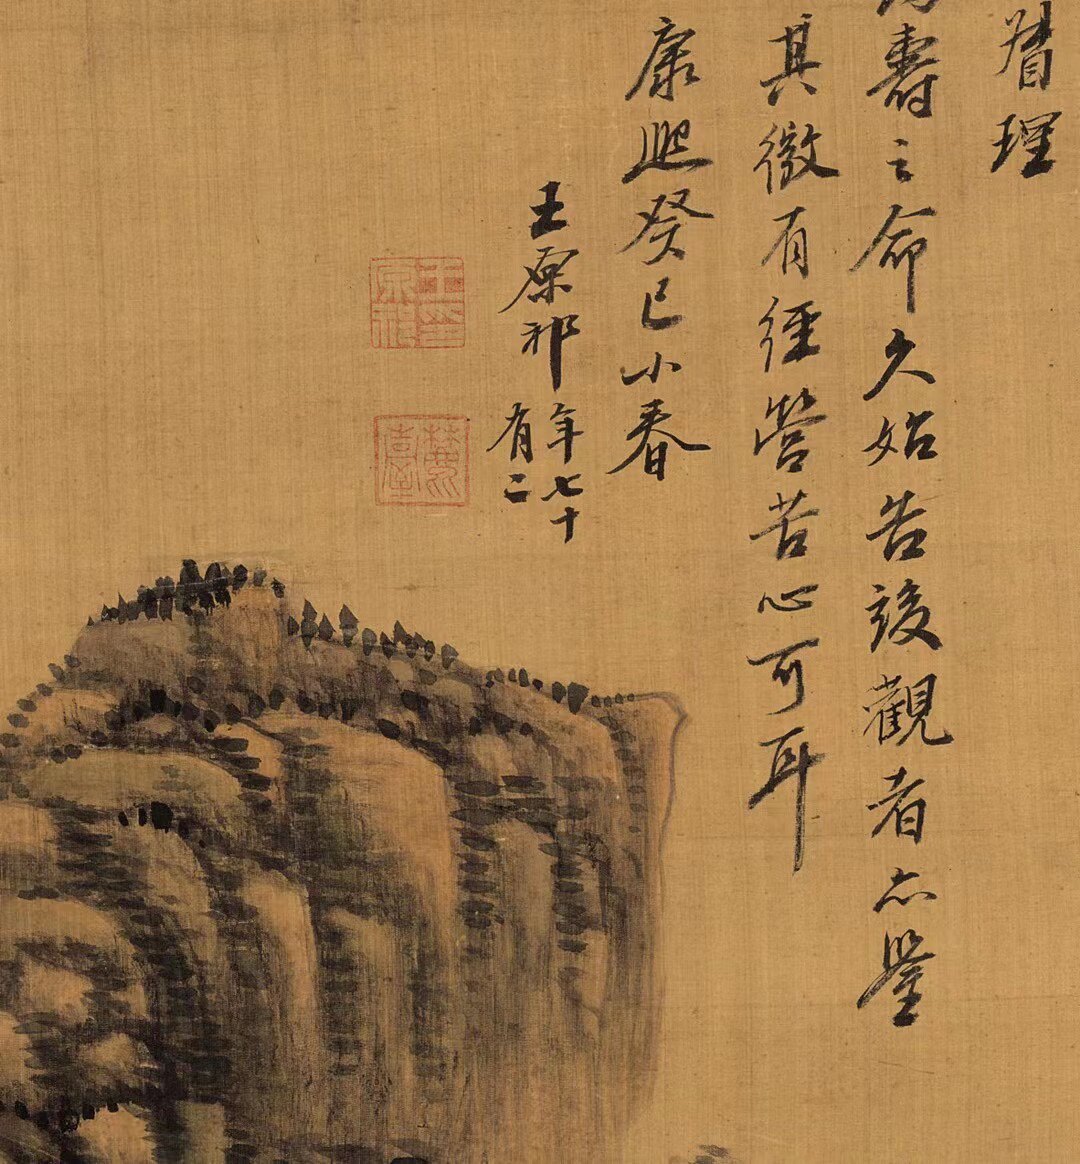 理
壽之命久始告竣觀者亦鑒
其微有經營苦心可耳
康熙癸巳小春
王原祁年七十
有二
王原祁印
麓臺